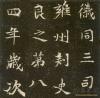 儀同三司
雍州刾史
良之第八
四年歲次